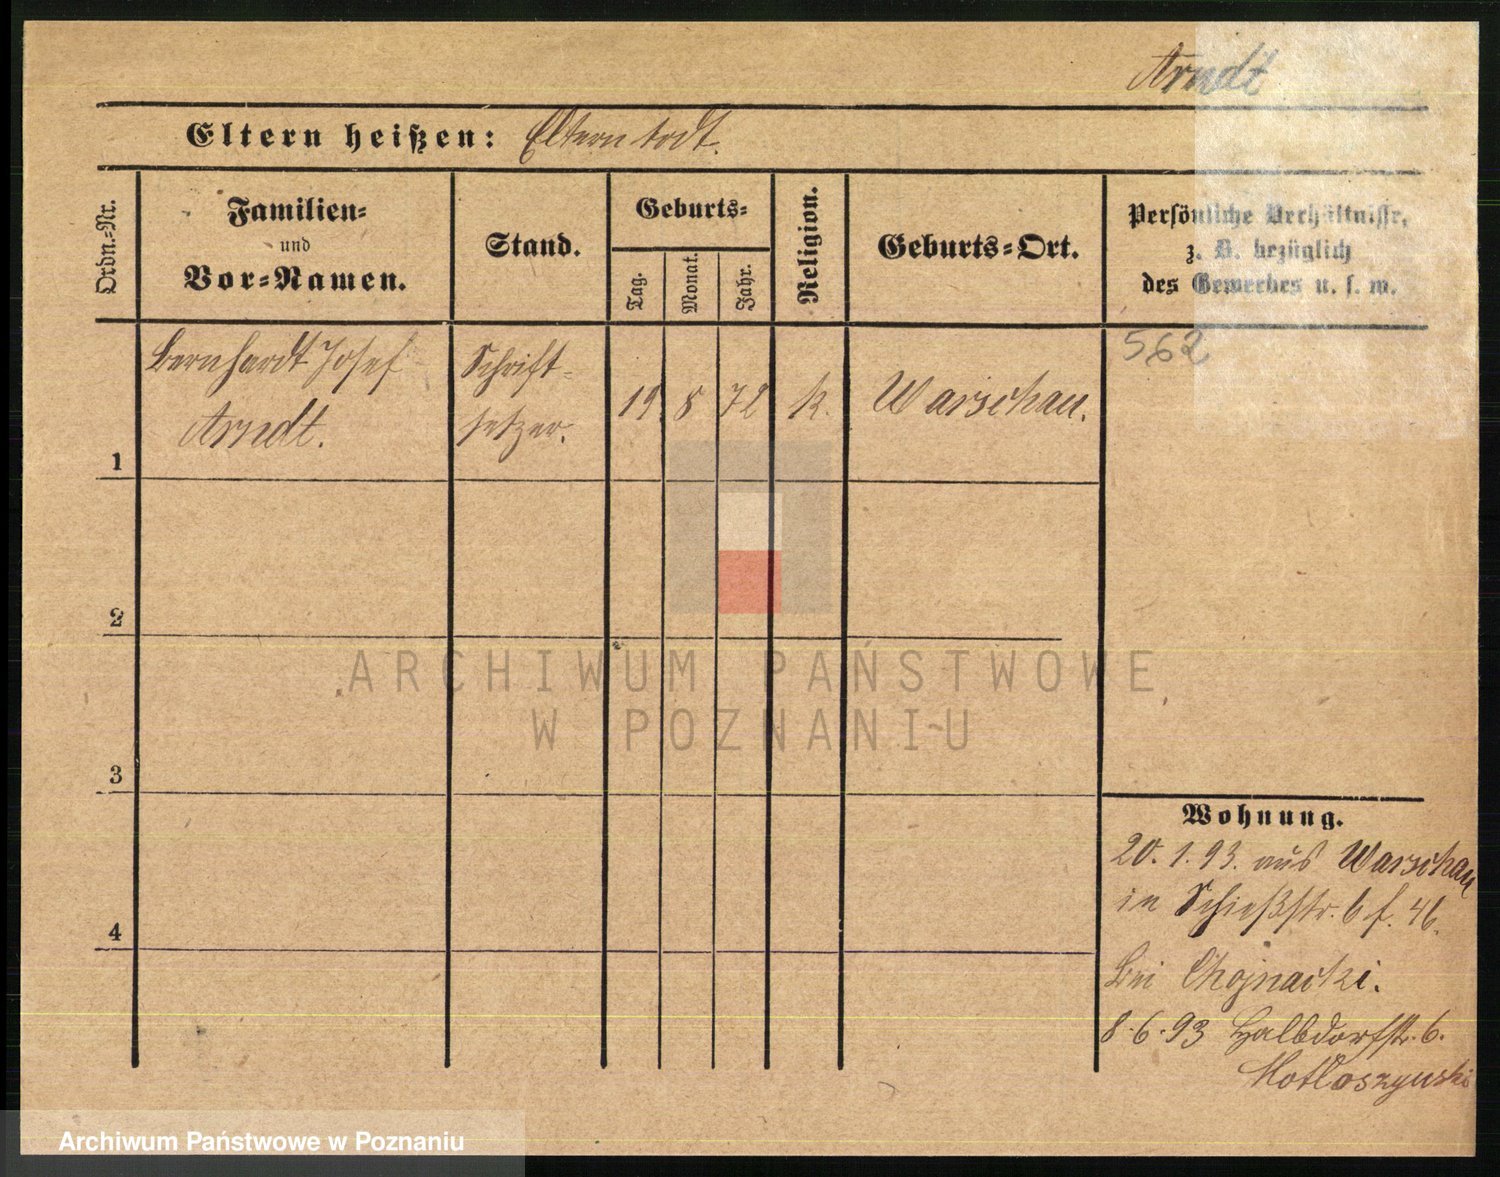 Arndt
Eltern heißen: Eltern todt.
Ordn.-Nr.
Familien-
und
Vor-Namen.
Stand.
Geburts-
Tag.
Monat.
Jahr.
Religion.
Geburts-Ort.
Persönliche Verhältnisse,
z. B. bezüglich
des Gewerbes u. s. w.
1
Bernhardt Josef
Arndt.
Schrift-
setzer.
19
8
72
k.
Warschau.
562
2
3
4
ARCHIWUM PAŃSTWOWE
W POZNANIU
Wohnung.
20. 1. 93. aus Warschau
in Schießstr. 6 f. 46.
bei Chojnacki.
8.6.93 Halbdorfstr. 6.
Archiwum Państwowe w Poznaniu